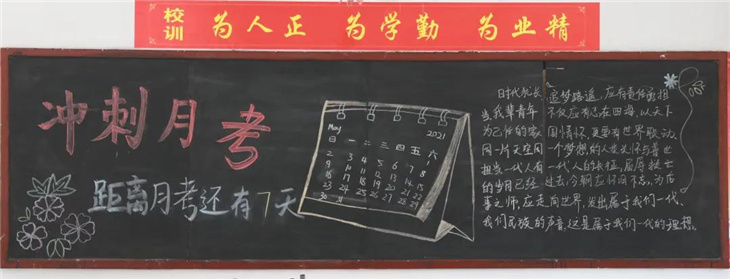 校训 为人正 为学勤 为业精
冲刺月考
距离月考还有7天
May 2021
日 一 二 三 四 五 六
1
2 3 4 5 6 7 8
9 10 11 12 13 14 15
16 17 18 19 20 21 22
23 24 25 26 27 28 29
30 31
时代犹长 追梦路遥,应有责任感担
当,我辈青年 不仅应有志在四海,以天下
为己任的家 国情怀,更要有世界联动,
同一片天空同 一个梦想的人类关怀与普世
担当。一代人有 一代人的长征,屈辱
的岁月已经 过去,今朝
应走向世界,发出属于我们一代、
我们民族的声音,这是属于我们一代的理想。